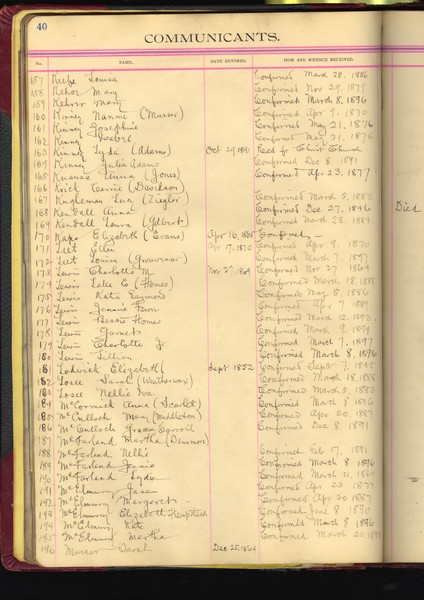 40
COMMUNICANTS.
No. NAME. DATE ENTERED. HOW AND WHENCE RECEIVED.
157 Keefe Louisa Confirmed March 28, 1886
158 Kehor Mary Confirmed Nov 29, 1879
159 Mary Confirmed March 8, 1896
160 Kinney Nannie (Mercer) Confirmed Apr 9, 1870
161 Kinney Josephine Confirmed May 21, 1876
162 Kinney Isabel Confirmed May 21, 1876
163 Kinney Lyda (Adams) Oct 29, 1890 Rec'd fr Christ Church
164 Kinney Julia Adams Confirmed Dec 8, 1891
165 Anna (Jones) Confirmed Apr 23, 1877
166 Krick Carrie (Davidson)
167 Kugheman Lucy (Ziegler) Confirmed March 5, 1883
168 Kendall Anna Confirmed Dec 27, 1846 Died
169 Kendall Laura (Gilbert) Confirmed March 23, 1884
170 Kaps Elizabeth (Evans) Apr 16, 1865 Confirmed —
171 Leet Ellen Apr 17, 1870 Confirmed Apr 9, 1870
172 Leet Louisa (Grosvenor) Confirmed March 7, 1897
173 Lewis Charlotte M Nov 27, 1864 Confirmed Nov 27 1864
174 Lewis Lele C (Homes) Confirmed March 18, 1888
175 Lewis Kate Raymond Confirmed May 8, 1886
176 Lewis Jennie Fawn Confirmed Apr 7, 1889
177 Lewis Bessie Homes Confirmed March 12, 1893
178 Lewis Garnets Confirmed March 9, 1894
179 Lewis Charlotte J Confirmed March 7, 1897
180 Lewis Lillian Confirmed March 8, 1896
181 Lodwick Elizabeth ( Sept 1852 Confirmed Sept 7, 1845
182 Losee Sarah (Weatherwax) Confirmed March 18, 1888
183 Losee Nellie Iva Confirmed March 5, 1883
184 McCormick Anna (Scarlet) Confirmed March 8, 1896
185 McCulloch Mary (Middleton) Confirmed Apr 20, 1887
186 McCulloch Grace Carroll Confirmed Dec 8, 1891
187 McFarland Martha (Demmon)
188 McFarland Nellie Confirmed Feb 17, 1891
189 McFarland Jennie Confirmed March 8, 1896
190 McFarland Lyda Confirmed March
191 McElmurry Jane Confirmed Apr 23 1877
192 McElmurry Margaret — Confirmed Apr 20 1887
193 McElmurry Elizabeth Hempstead Confirmed June 8 1890
194 McElmurry Kate Confirmed March 8 1896
195 McElmurry Martha Confirmed March 20
196 Mercer Sarah Dec 25, 1864